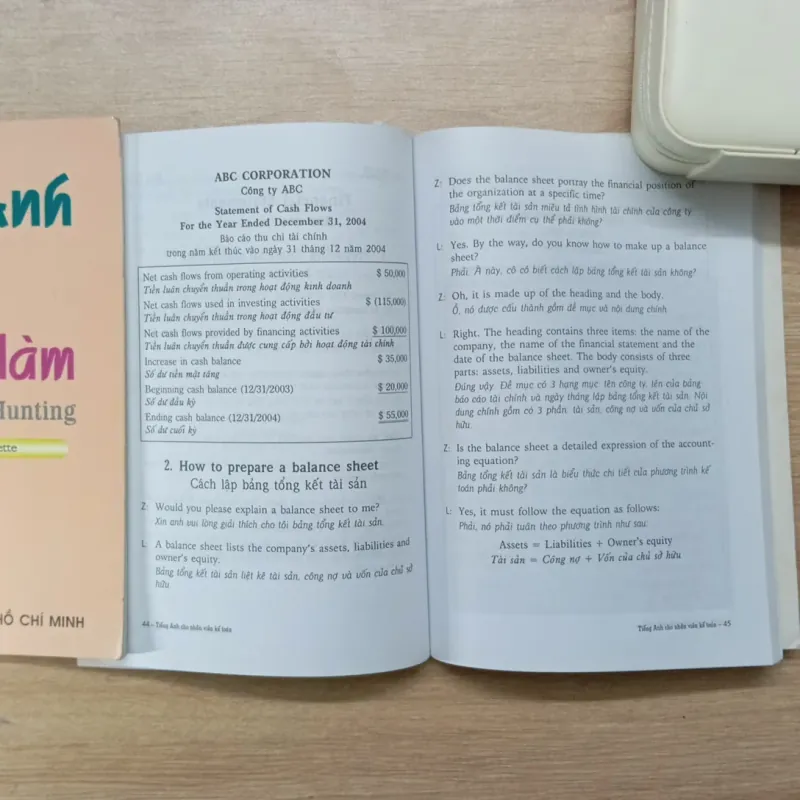 anh
làm
Hunting
ette
HỒ CHÍ MINH
ABC CORPORATION
Công ty ABC
Statement of Cash Flows
For the Year Ended December 31, 2004
Báo cáo thu chi tài chính
trong năm kết thúc vào ngày 31 tháng 12 năm 2004
Net cash flows from operating activities $ 50,000
Tiền luân chuyển thuần trong hoạt động kinh doanh
Net cash flows used in investing activities $ (115,000)
Tiền luân chuyển thuần trong hoạt động đầu tư
Net cash flows provided by financing activities $ 100,000
Tiền luân chuyển thuần được cung cấp bởi hoạt động tài chính
Increase in cash balance $ 35,000
Số dư tiền mặt tăng
Beginning cash balance (12/31/2003) $ 20,000
Số dư đầu kỳ
Ending cash balance (12/31/2004) $ 55,000
Số dư cuối kỳ
2. How to prepare a balance sheet
Cách lập bảng tổng kết tài sản
Z: Would you please explain a balance sheet to me?
Xin anh vui lòng giải thích cho tôi bảng tổng kết tài sản.
L: A balance sheet lists the company's assets, liabilities and
owner's equity.
Bảng tổng kết tài sản liệt kê tài sản, công nợ và vốn của chủ sở
hữu.
44 – Tiếng Anh cho nhân viên kế toán
Z: Does the balance sheet portray the financial position of
the organization at a specific time?
Bảng tổng kết tài sản miêu tả tình hình tài chính của công ty
vào một thời điểm cụ thể phải không?
L: Yes. By the way, do you know how to make up a balance
sheet?
Phải. À này, cô có biết cách lập bảng tổng kết tài sản không?
Z: Oh, it is made up of the heading and the body.
Ồ, nó được cấu thành gồm đề mục và nội dung chính.
L: Right. The heading contains three items: the name of the
company, the name of the financial statement and the
date of the balance sheet. The body consists of three
parts: assets, liabilities and owner's equity.
Đúng vậy. Đề mục có 3 hạng mục: tên công ty, tên của bảng
báo cáo tài chính và ngày tháng lập bảng tổng kết tài sản. Nội
dung chính gồm có 3 phần: tài sản, công nợ và vốn của chủ sở
hữu.
Z: Is the balance sheet a detailed expression of the account-
ing equation?
Bảng tổng kết tài sản là biểu thức chi tiết của phương trình kế
toán phải không?
L: Yes, it must follow the equation as follows:
Phải, nó phải tuân theo phương trình như sau:
Assets = Liabilities + Owner's equity
Tài sản = Công nợ + Vốn của chủ sở hữu
Tiếng Anh cho nhân viên kế toán – 45